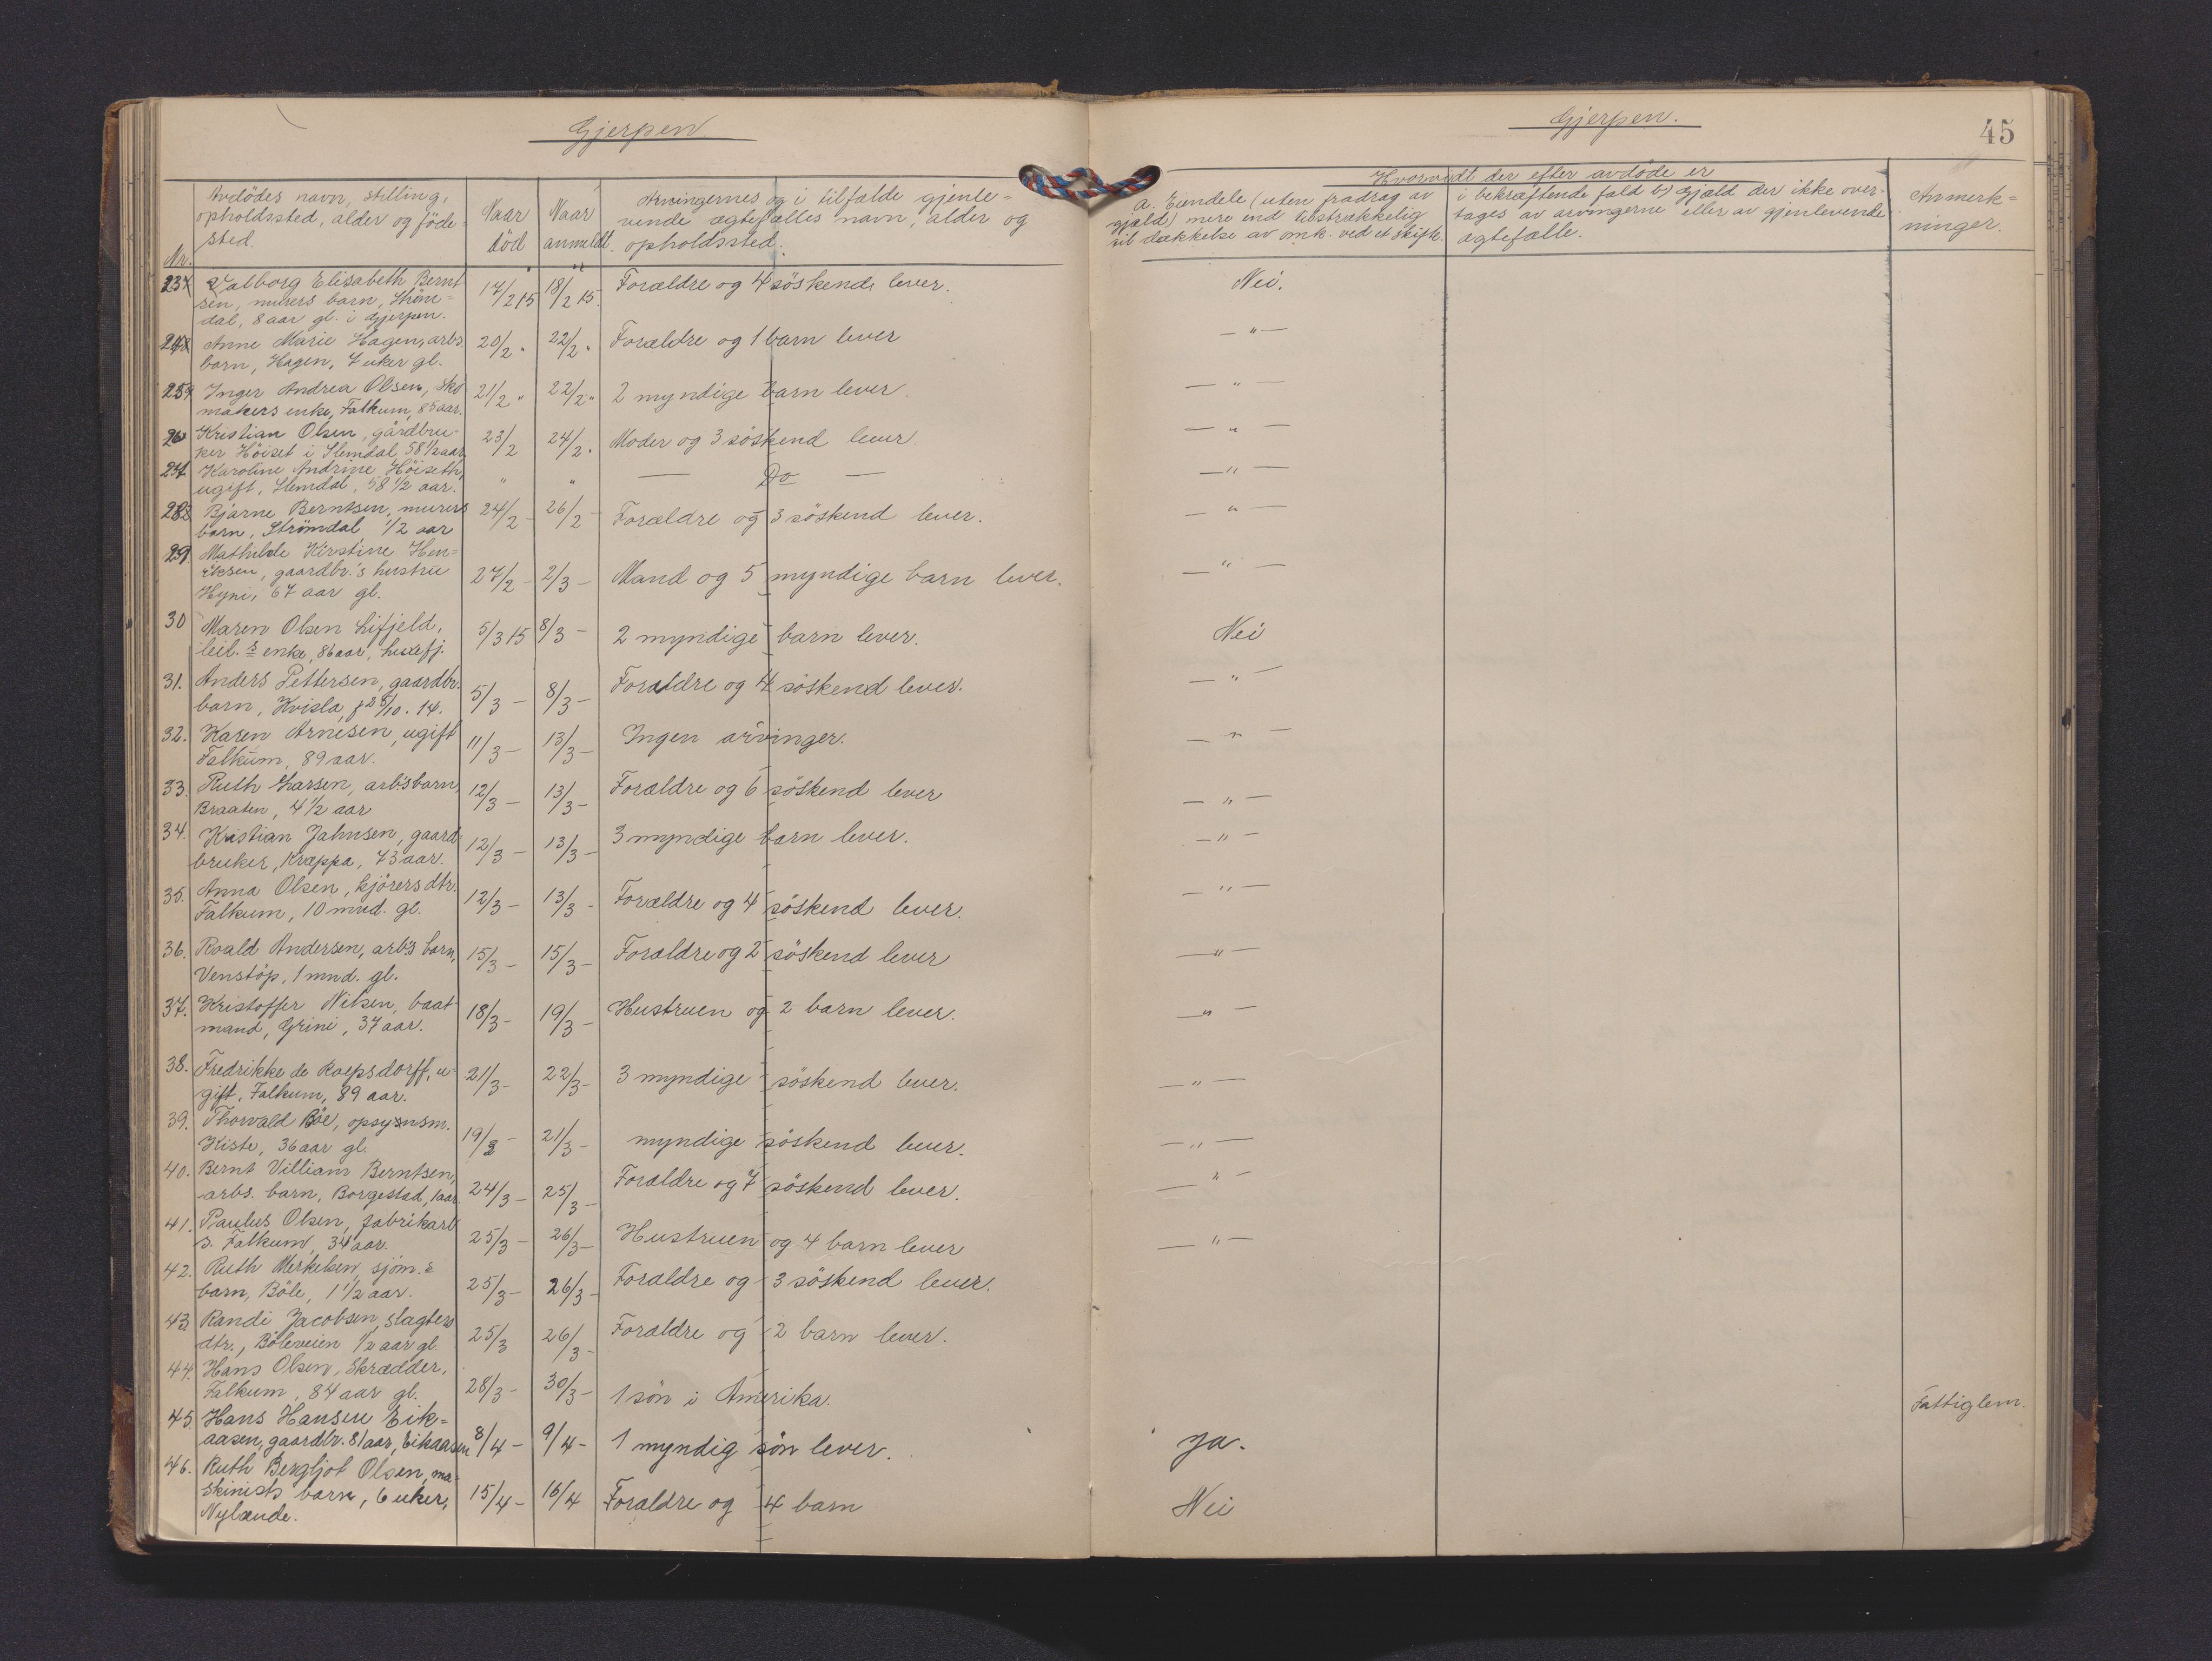 Gjerpen.
Gjerpen.
45
Nr.
Avdödes navn, stilling,
opholdssted, alder og föde-
sted.
Naar
död
Naar
anmeldt.
Arvingernes og i tilfælde gjenle-
vende ægtefælles navn, alder og
opholdssted.
Hvorvidt der efter avdöde er
a. Eiendele (uten fradrag av
gjæld) mere end tilstrækkelig
til dækkelse av omk. ved et skifte.
i bekræftende fald b) Gjæld der ikke over-
tages av arvingerne eller av gjenlevende
ægtefælle.
Anmerk-
ninger.
23 Valborg Elisabeth Bernt
sen, murers barn, Ström-
dal, 8 aar gl. i Gjerpen. 17/2 15 18/2 15. Forældre og 4 söskende lever. Nei.
24 Anne Marie Hagen, arbs
barn, Hagen, 7 uker gl. 20/2 " 22/2 " Forældre og 1 barn lever — " —
25 Inger Andrea Olsen, sko
makers enke, Falkum, 85 aar. 21/2 " 22/2 " 2 myndige barn lever. — " —
26 Kristian Olsen, gårdbru-
ker Höiset i Slemdal 58 1/2 aar 23/2 24/2 " Moder og 3 söskend lever. — " —
27. Karoline Andrine Höiseth,
ugift, Slemdal, 58 1/2 aar. " " — Do — — " —
28 Bjarne Berntsen, murers
barn, Strömdal 1/2 aar 24/2 - 26/2 - Forældre og 3 söskend lever. — " —
29 Mathilde Kirstine Hen-
riksen, gaardbr.'s hustru
Hyni, 67 aar gl. 27/2 - 2/3 - Mand og 5 myndige barn lever. — " —
30 Maren Olsen Lifjeld,
leil.s enke, 86 aar, 5/3 15 8/3 - 2 myndige barn lever. Nei
31. Anders Pettersen, gaardbr.
barn, Kvisla, f 28/10. 14. 5/3 - 8/3 - Forældre og 4 söskend lever. — " —
32. Karen Arnesen, ugift
Falkum, 89 aar. 11/3 - 13/3 - Ingen arvinger. — " —
33. Ruth Larsen, arb's barn,
Braaten, 4 1/2 aar 12/3 - 13/3 - Forældre og 6 söskend lever — " —
34. Kristian Jahnsen, gaard
bruker, Kræppa, 73 aar. 12/3 - 13/3 - 3 myndige barn lever. — " —
35. Anna Olsen, kjörers dtr.
Falkum, 10 mnd. gl. 12/3 - 13/3 - Forældre og 4 söskend lever. — " —
36. Roald Andersen, arb's barn,
Venstöp, 1 mnd. gl. 15/3 - 15/3 - Forældre og 2 söskend lever — " —
37. Kristoffer Nilsen, baat
mand, Grini, 37 aar. 18/3 - 19/3 - Hustruen og 2 barn lever. — " —
38. Fredrikke de Roepsdorff, u-
gift, Falkum, 89 aar. 21/3 - 22/3 - 3 myndige söskend lever. — " —
39. Thorvald Böe, opsynsm.
Kiste, 36 aar gl. 19/3 - 21/3 - myndige söskend lever. — " —
40. Bernt Villiam Berntsen,
arbs. barn, Borgestad, 1 aar 24/3 - 25/3 - Forældre og 7 söskend lever. — " —
41. Paulus Olsen, fabrikarb
s. Falkum, 34 aar. 25/3 - 26/3 - Hustruen og 4 barn lever — " —
42. Ruth Merkelsen, sjöm.s
barn, Böle, 1 1/2 aar. 25/3 - 26/3 - Forældre og 3 söskend lever.
43 Randi Jacobsen, slagters
dtr., Böleveien 1/2 aar gl. 25/3 26/3 - Forældre og 2 barn lever.
44. Hans Olsen, Skrædder,
Falkum, 84 aar gl. 28/3 - 30/3 - 1 sön i Amerika. Fattiglem.
45. Hans Hansen Eik-
aasen, gaardbr. 81 aar, Eikaasen 8/4 - 9/4 - 1 myndig sön lever. ja.
46. Ruth Bergljot Olsen, ma-
skinists barn, 6 uker,
Nylænde. 15/4 - 16/4 Forældre og 4 barn Nei